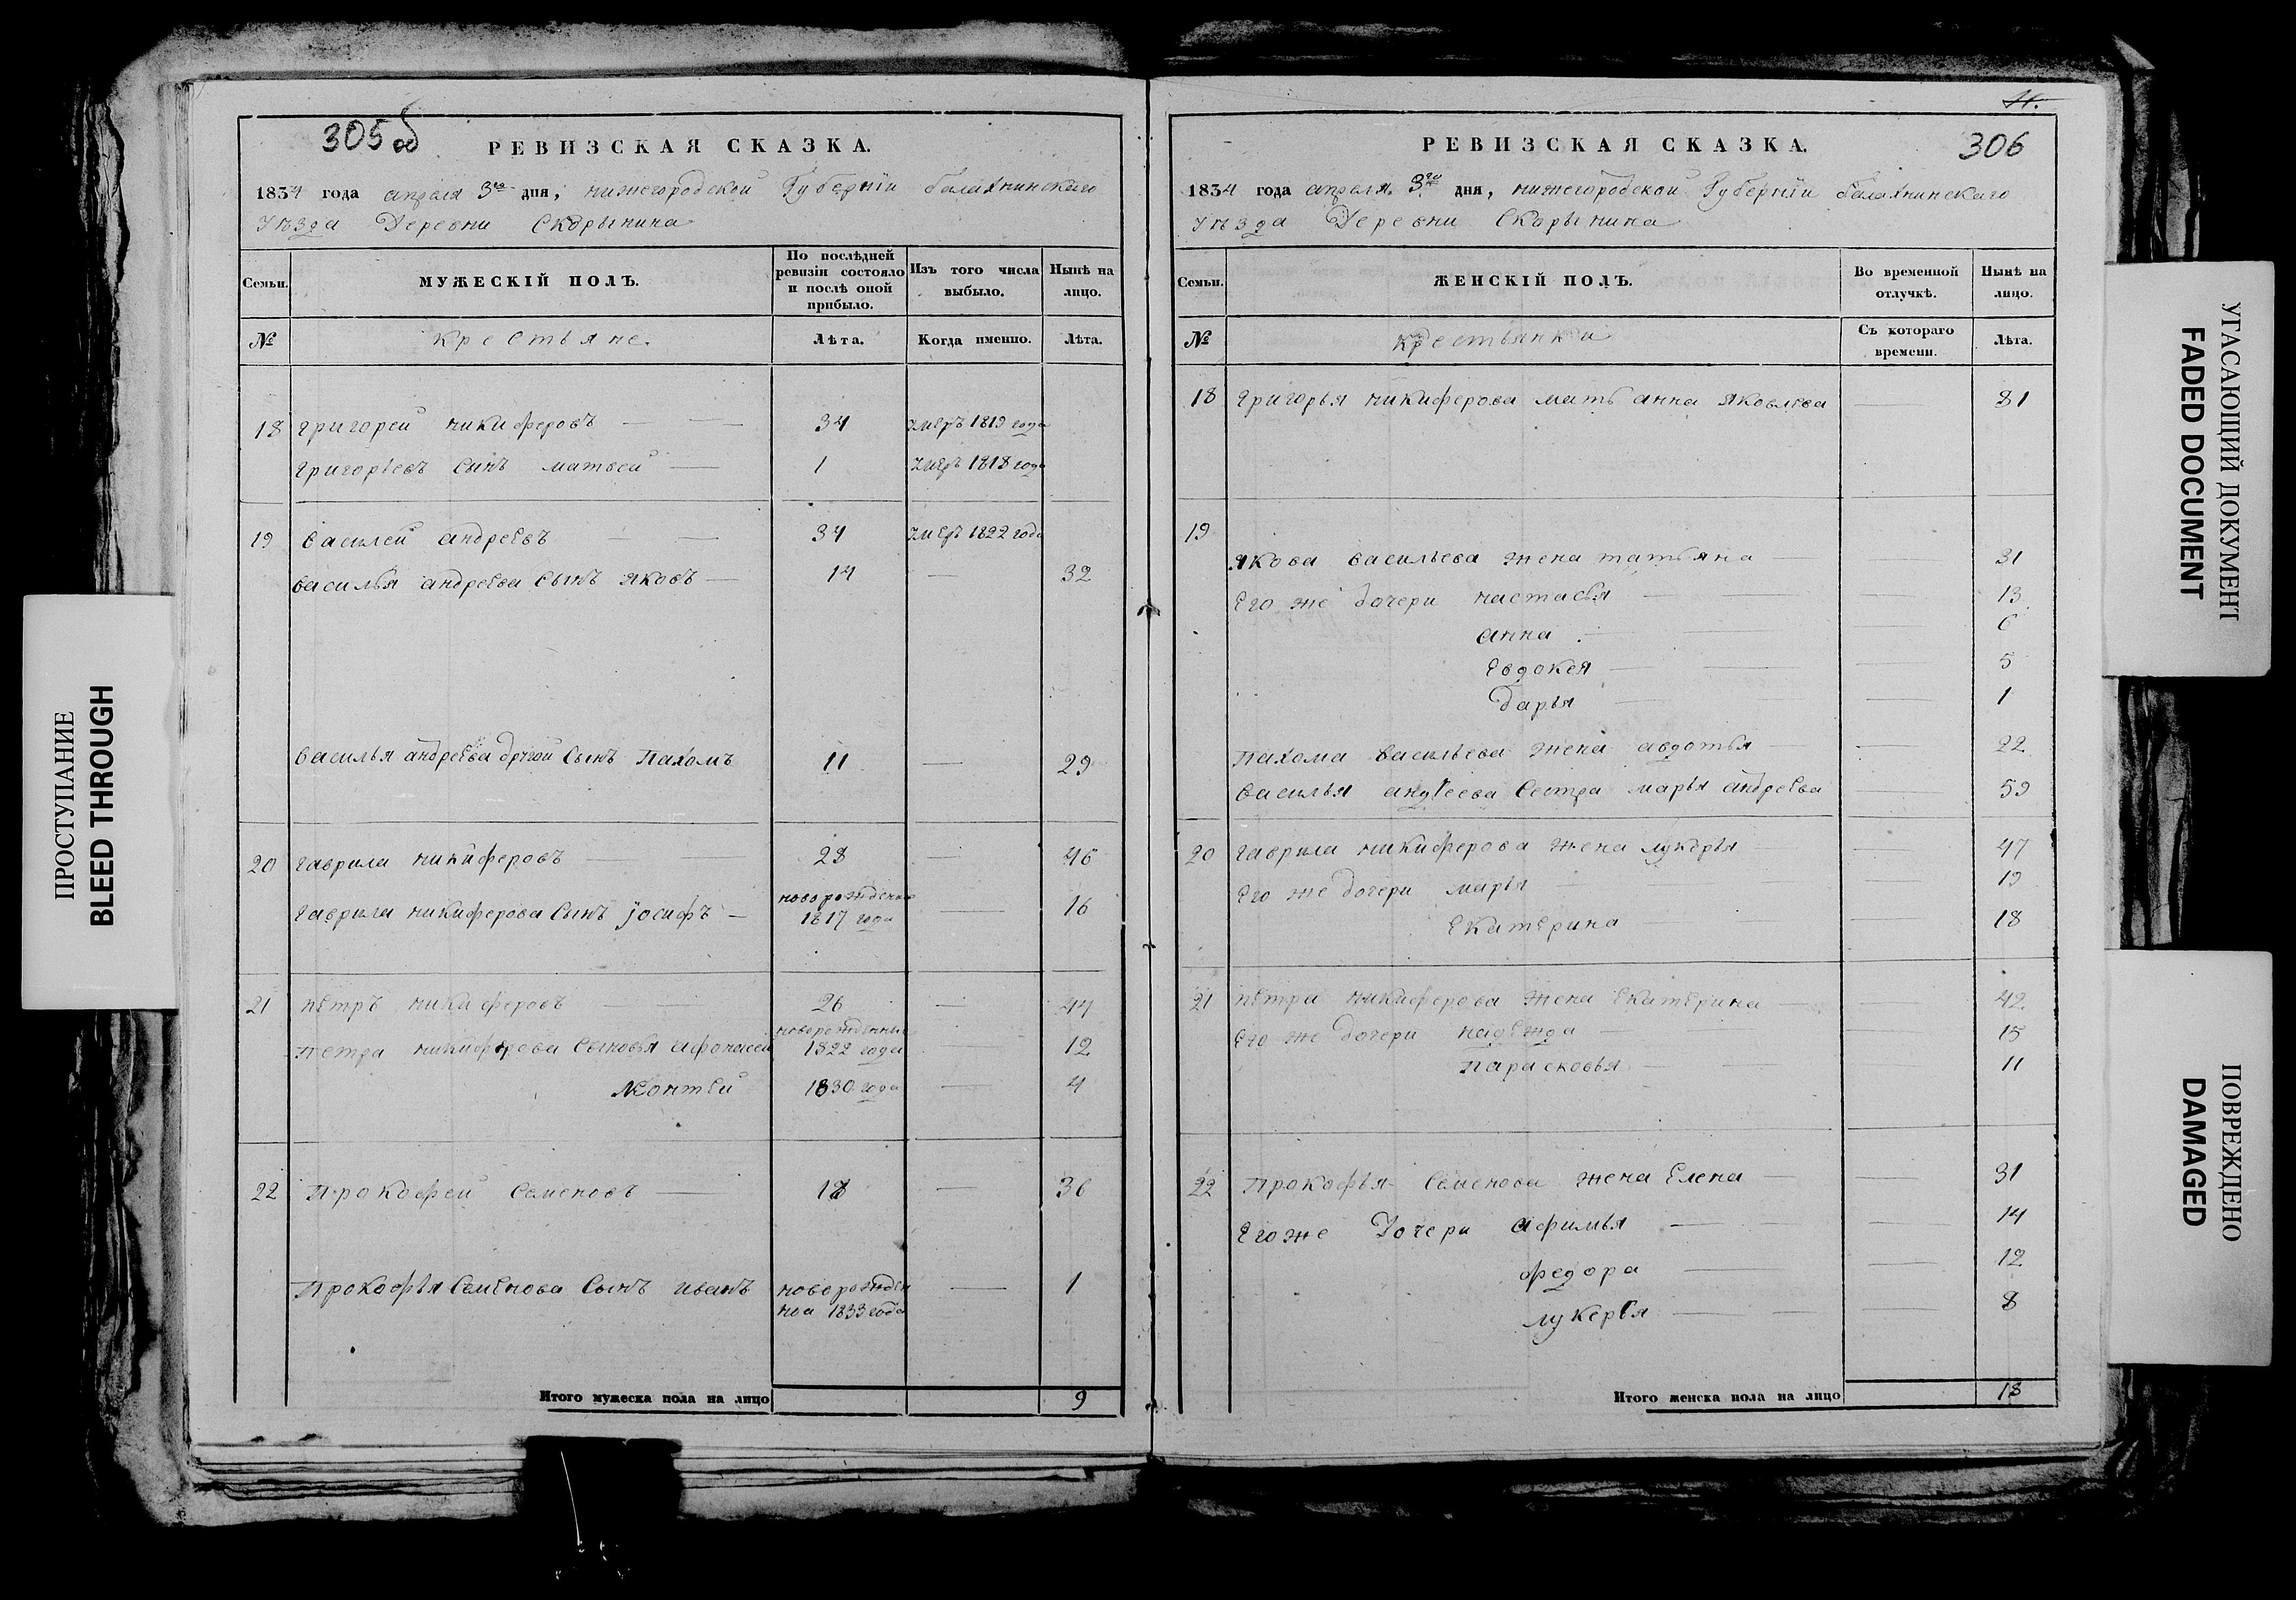 305 об
РЕВИЗСКАЯ СКАЗКА.
1834 года апреля 3го дня, нижегородской Губерніи балахнинскаго
Уѣзда Деревни Скорынина
Семьи.
МУЖЕСКІЙ ПОЛЪ.
По послѣдней ревизіи состояло и послѣ оной прибыло.
Изъ того числа выбыло.
Нынѣ на лицо.
№
крестьяне.
Лѣта.
Когда именно.
Лѣта.
18 григорей никиферовъ 34 умеръ 1819 года
григорьевъ синъ матвей 1 умеръ 1818 года
19 василей андреевъ 34 умеръ 1822 года
василья андреева сынъ яковъ 14 32
василья андреева другой сынъ Пахомъ 11 29
20 гаврила никиферовъ 28 46
гаврила никиферова сынъ јосифъ новорожденои 1817 года 16
21 петръ никиферовъ 26 44
петра никиферова сыновья афонасей новорожденны 1822 года 12
Контей 1830 года 4
22 Прокофей Семеновъ 18 36
Прокофья Семенова сынъ иванъ новорожден ной 1833 года 1
Итого мужеска пола на лицо 9
306
РЕВИЗСКАЯ СКАЗКА.
1834 года апреля 3го дня, нижегородской Губерніи балахнинскаго
Уѣзда Деревни Скорынина
Семьи.
ЖЕНСКІЙ ПОЛЪ.
Во временной отлучкѣ.
Нынѣ на лицо.
№
крестьянки
Съ котораго времени.
Лѣта.
18 григорья никиферова мать анна яковлева 81
19
якова васильева жена татьяна 31
его же дочери настасья 13
анна 6
Евдокея 5
дарья 1
Пахома васильева жена авдотья 22
василья андреева сестра марья андреева 59
20 гаврила никиферова жена лукерья 47
его же дочери марья 19
Екатерина 18
21 петра никиферова жена екатерина 42
его же дочери надежда 15
Парасковья 11
22 Прокофья Семенова жена Елена 31
Его же Дочери афимья 14
федора 12
лукерья 8
Итого женска пола на лицо 18
ПРОСТУПАНИЕ
BLEED THROUGH
УГАСАЮЩИЙ ДОКУМЕНТ
FADED DOCUMENT
ПОВРЕЖДЕНО
DAMAGED